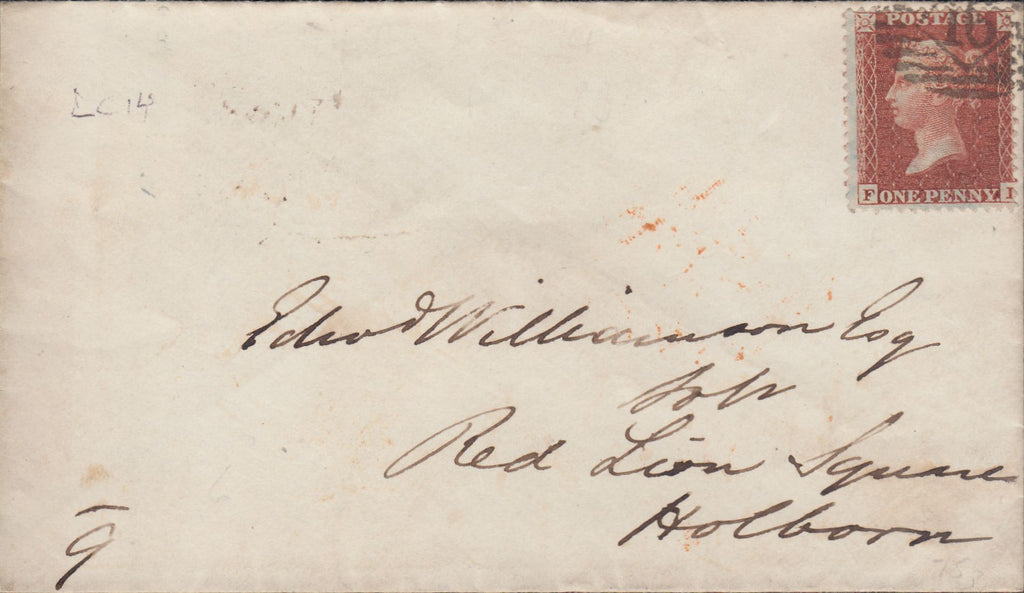 POSTAGE
10
F ONE PENNY. I
LC14
Edwd Williamson Esq
Solr
Red Lion Square
Holborn
9